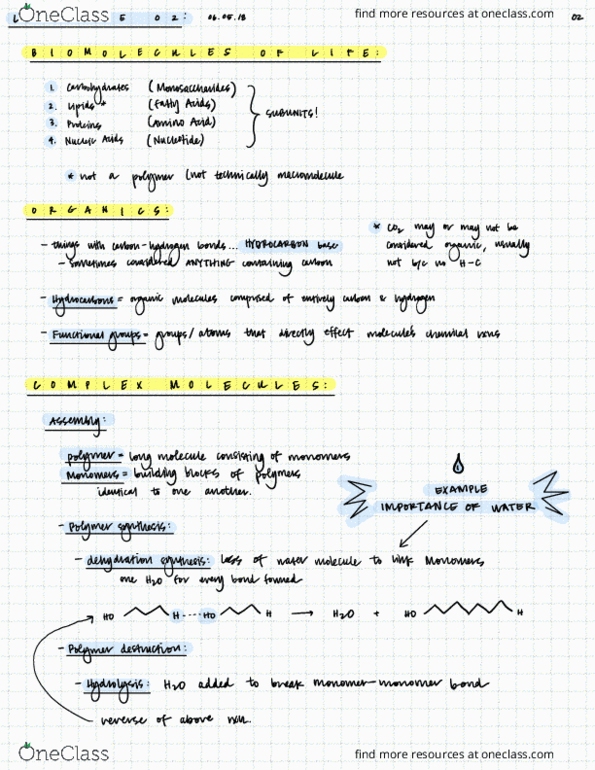 OneClass
find more resources at oneclass.com
L E 02: 06.05.18 02
BIOMOLECULES OF LIFE:
1. Carbohydrates (Monosaccharides)
2. Lipids * (Fatty Acids)
3. Proteins (Amino Acid)
4. Nucleic Acids (Nucleotide)
SUBUNITS!
* not a polymer (not technically macromolecule
ORGANICS:
- things with carbon-hydrogen bonds... HYDROCARBON base
- sometimes considered ANYTHING containing carbon
* CO2 may or may not be
considered organic, usually
not b/c no H-C
- Hydrocarbons = organic molecules comprised of entirely carbon & hydrogen
- Functional groups = groups/atoms that directly effect molecules chemical rxns
COMPLEX MOLECULES:
Assembly:
polymer = long molecule consisting of monomers
Monomers = building blocks of polymers
identical to one another.
EXAMPLE
IMPORTANCE OF WATER
- Polymer synthesis:
- dehydration synthesis: loss of water molecule to link monomers
one H2O for every bond formed
HO H ---- HO H → H2O + HO H
- Polymer destruction:
- Hydrolysis: H2O added to break monomer-monomer bond
reverse of above rxn.
OneClass
find more resources at oneclass.com